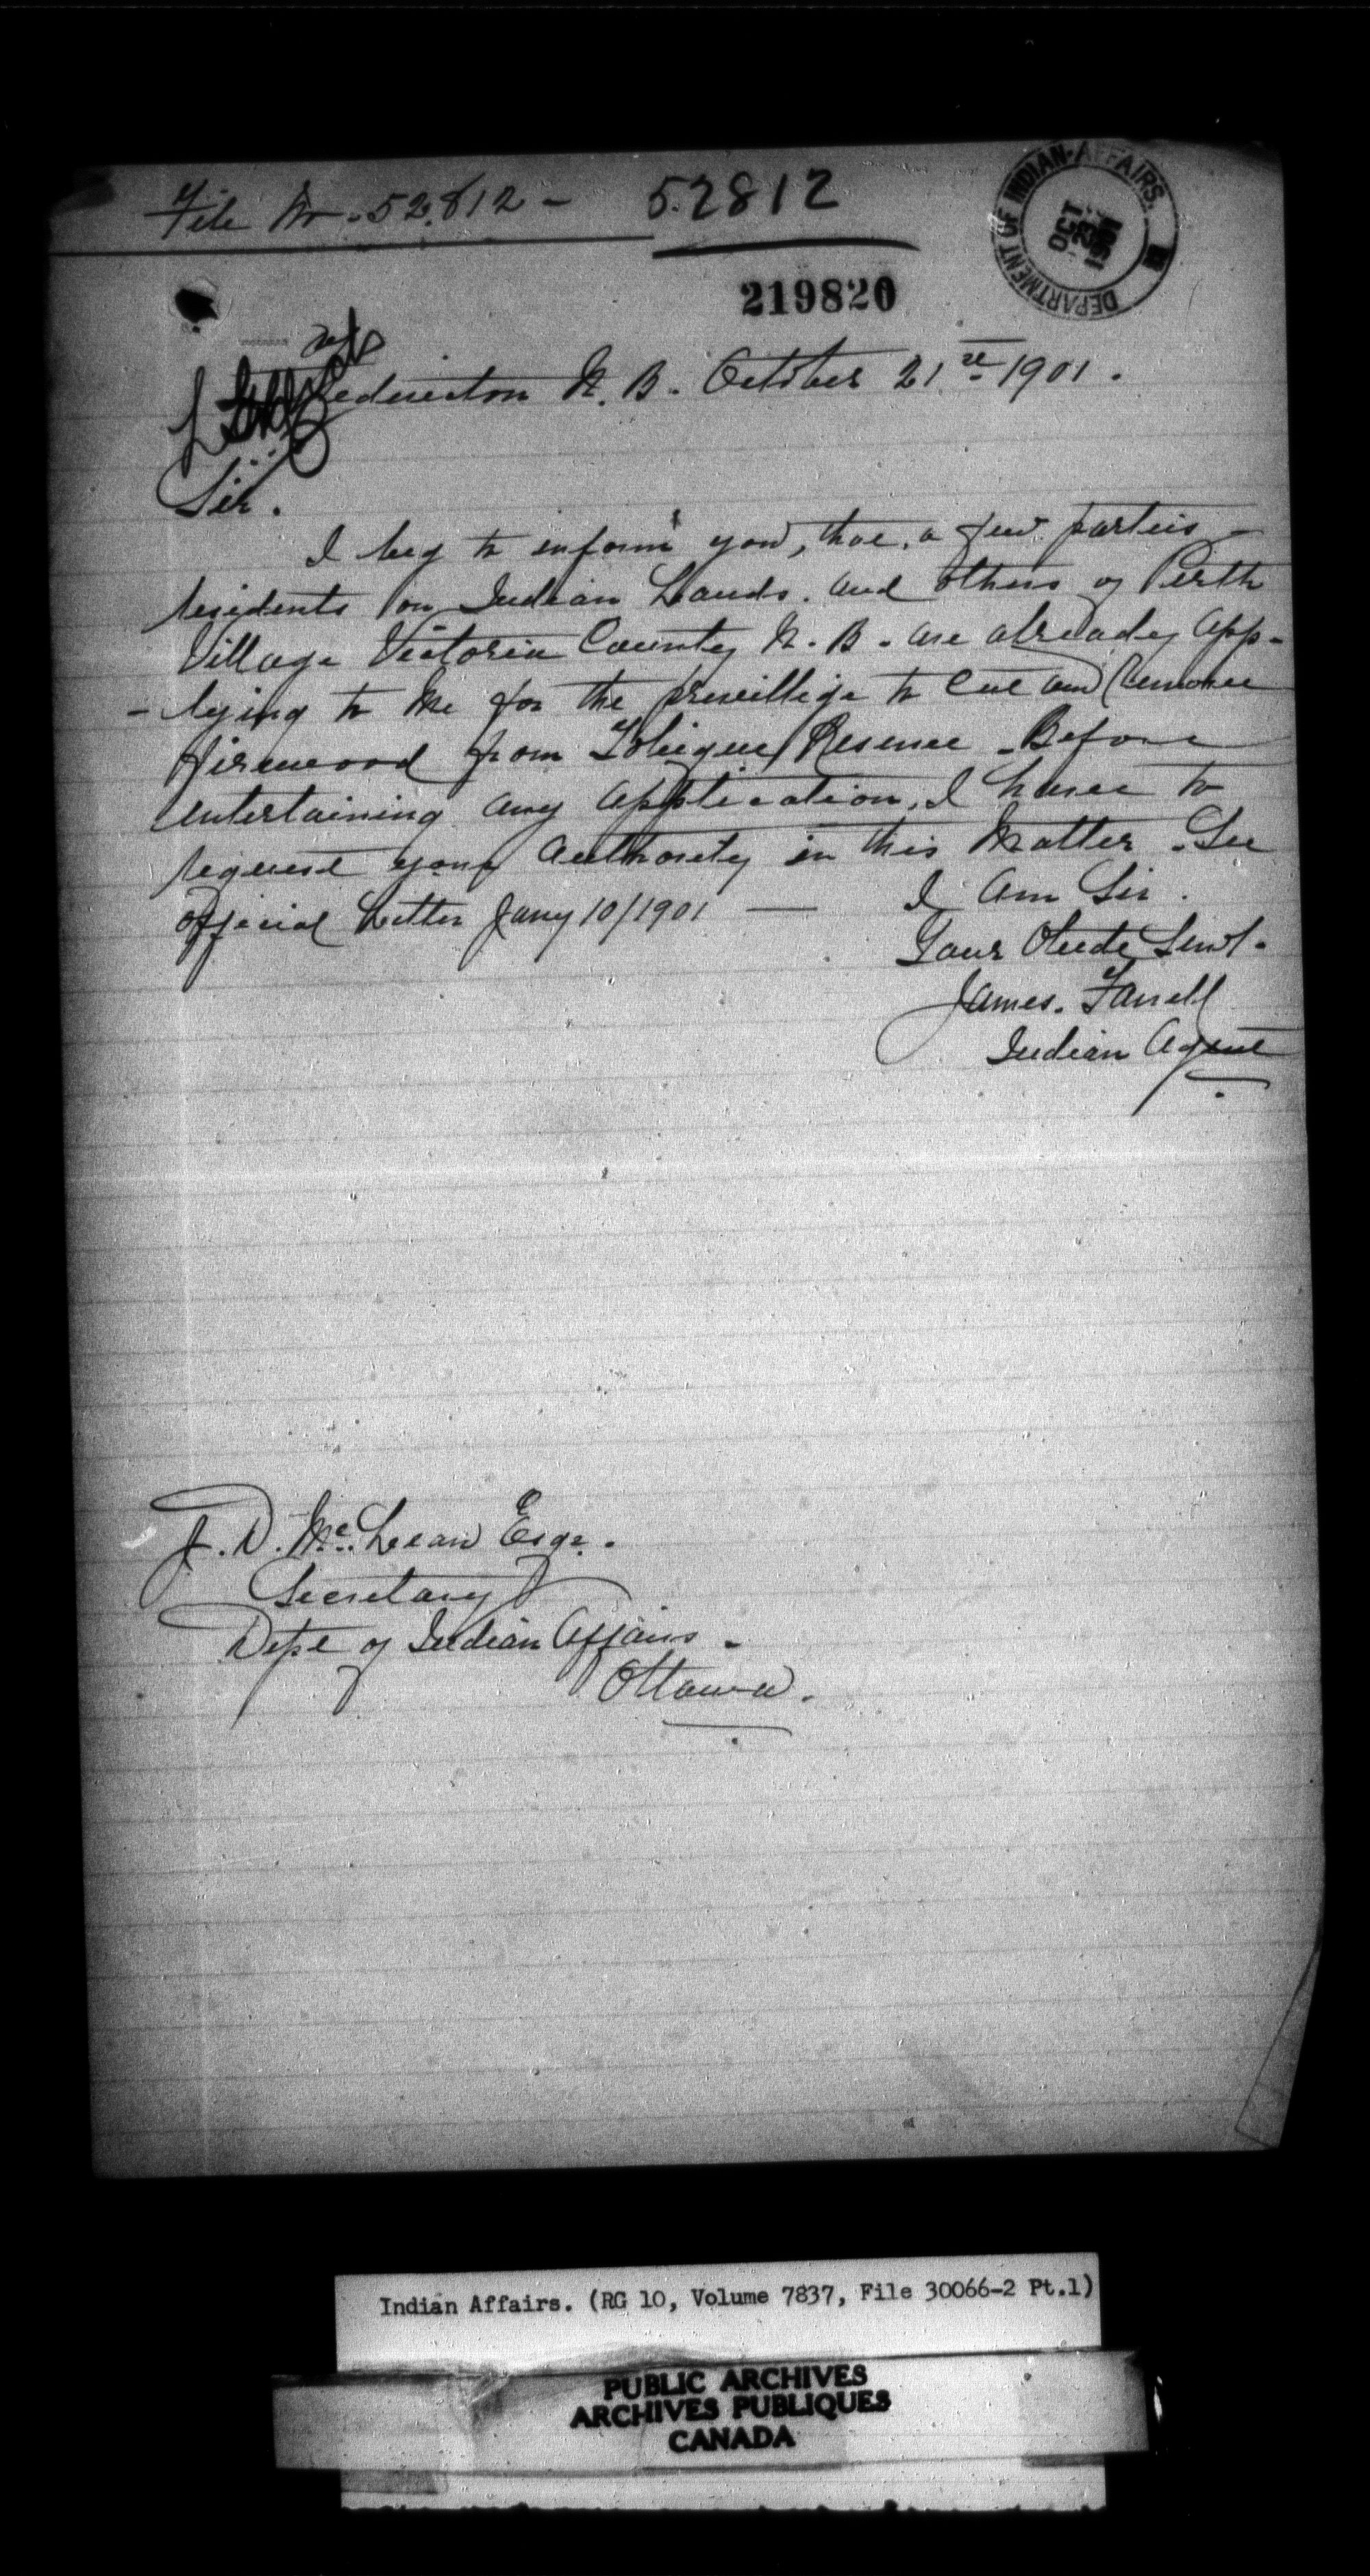 File No. 52.812 - 52812
DEPARTMENT OF INDIAN AFFAIRS.
OCT 23 1901
219820
Fredericton N. B. October 21st 1901.
Sir.
I beg to inform you, that, a few parties -
residents on Indian Lands. and others of Perth
Village Victoria County N. B. are already app-
- lying to me for the previllige to cut and remove
firewood from Tobique Reserve. Before
entertaining any application, I have to
request your authority in this matter. See
official Letter Jany 10/1901 —
I am Sir.
Your Obedt Servt.
James. Farrell
Indian Agent
J. D. McLean Esqr.
Secretary
Dept of Indian Affairs.
Ottawa.
Indian Affairs. (RG 10, Volume 7837, File 30066-2 Pt.1)
PUBLIC ARCHIVES
ARCHIVES PUBLIQUES
CANADA